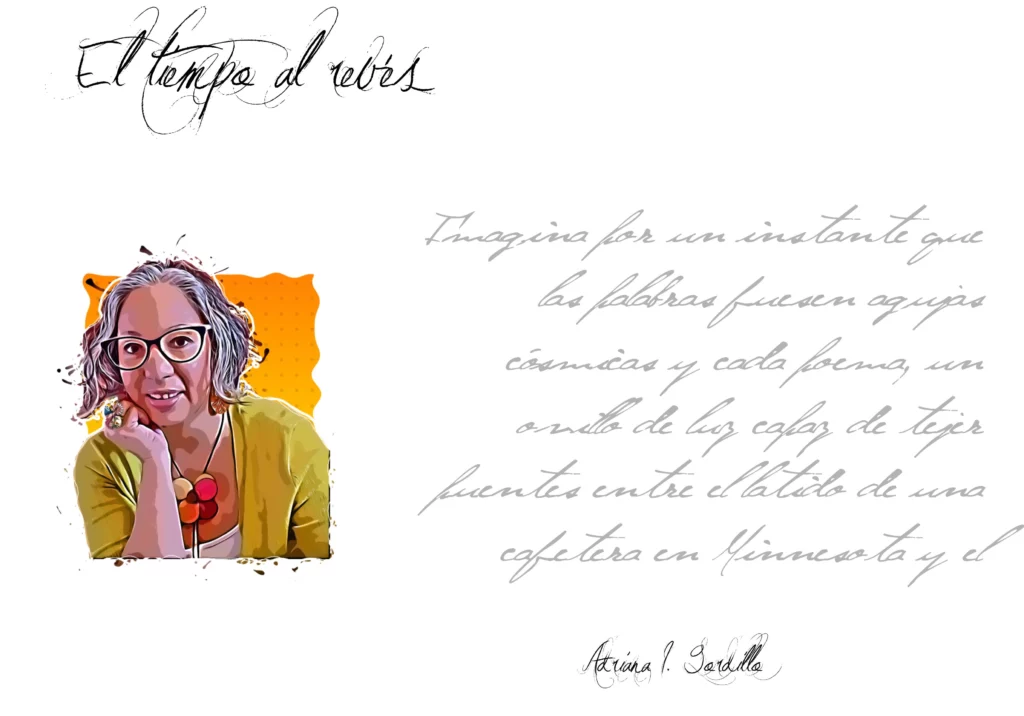 El tiempo al revés
Imagina por un instante que
las palabras fuesen agujas
cósmicas y cada poema, un
ovillo de luz capaz de tejer
puentes entre el latido de una
cafetera en Minnesota y el
Adriana I. Gordillo